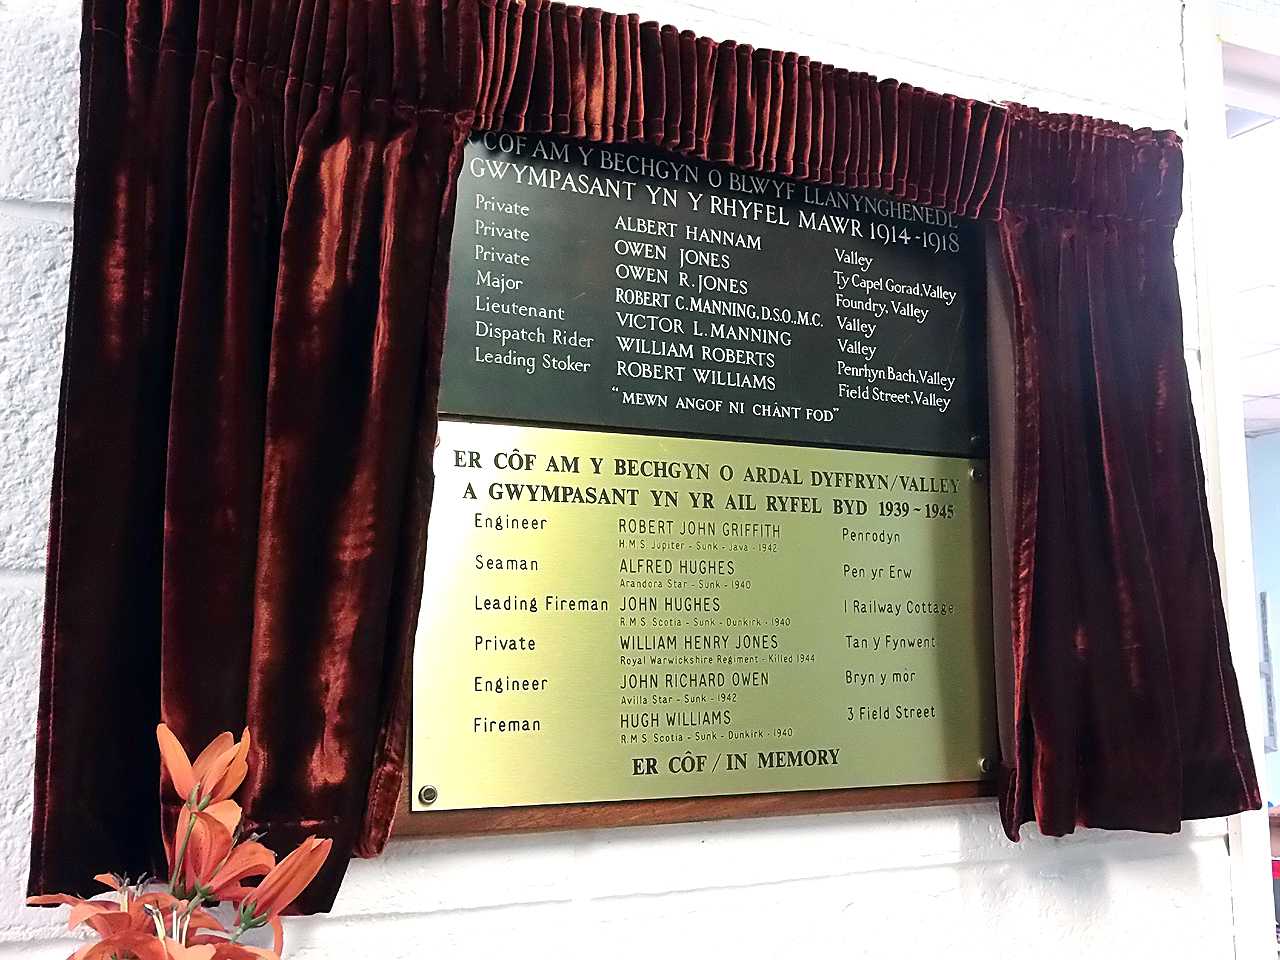 ER COF AM Y BECHGYN O BLWYF LLANYNGHENEDL
GWYMPASANT YN Y RHYFEL MAWR 1914-1918
Private ALBERT HANNAM Valley
Private OWEN JONES Ty Capel Gorad, Valley
Private OWEN R. JONES Foundry, Valley
Major ROBERT C. MANNING, D.S.O., M.C. Valley
Lieutenant VICTOR L. MANNING Valley
Dispatch Rider WILLIAM ROBERTS Penrhyn Bach, Valley
Leading Stoker ROBERT WILLIAMS Field Street, Valley
"MEWN ANGOF NI CHÂNT FOD"
ER CÔF AM Y BECHGYN O ARDAL DYFFRYN/VALLEY
A GWYMPASANT YN YR AIL RYFEL BYD 1939~1945
Engineer ROBERT JOHN GRIFFITH Penrodyn
H.M.S. Jupiter - Sunk - Java - 1942
Seaman ALFRED HUGHES Pen yr Erw
Arandora Star - Sunk - 1940
Leading Fireman JOHN HUGHES 1 Railway Cottage
R.M.S. Scotia - Sunk - Dunkirk - 1940
Private WILLIAM HENRY JONES Tan y Fynwent
Royal Warwickshire Regiment - Killed 1944
Engineer JOHN RICHARD OWEN Bryn y môr
Avilla Star - Sunk - 1942
Fireman HUGH WILLIAMS 3 Field Street
R.M.S. Scotia - Sunk - Dunkirk - 1940
ER CÔF / IN MEMORY